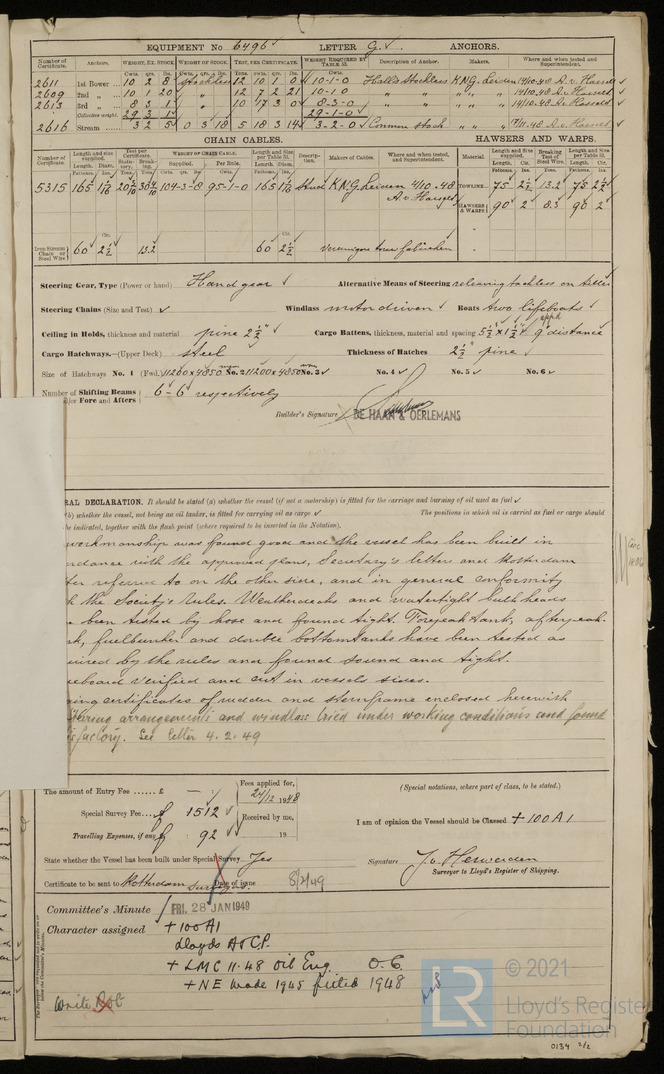 EQUIPMENT No 6496 LETTER G. ANCHORS.
Number of Certificate. Anchors. WEIGHT, EX. STOCK WEIGHT OF STOCK. TEST, PER CERTIFICATE. WEIGHT REQUIRED BY TABLE 53. Description of Anchor. Makers. Where and when tested and Superintendent.
2611 1st Bower 10 2 8 Stockless 12 10 1 0 10-1-0 Hall's Stockless K.N.G. Leiden 14/10.48 A. v. Hasselt
2609 2nd „ 10 1 20 „ 12 7 2 21 10-1-0 „ „ „ „ 14/10.48 A. v. Hasselt
2613 3rd „ 8 3 1 „ 10 17 3 0 8-3-0 „ „ „ „ 14/10.48 A. v. Hasselt
Collective weight. 29 3 1 29-1-0
2616 Stream 3 2 5 0 3 18 5 18 3 14 3-2-0 Common stock „ „ „ A. v. Hasselt
CHAIN CABLES. HAWSERS AND WARPS.
Number of Certificate. Length and size supplied. Test per Certificate. WEIGHT OF CHAIN CABLE. Length and Size per Table 53. Description. Makers of Cables. Where and when tested, and Superintendent. Material. Length and Size supplied. Breaking Test of Steel Wire. Length and Size per Table 53.
5315 165 1 7/16 104-3-8 95-1-0 165 Stud K.N.G. Leiden A. v. Hasselt TOWLINE 75 2½ 13.2 75 2½
HAWSERS & WARPS 90 2 8.3 90 2
Iron Stream Chain or Steel Wire 60 2½ 13.2 60 2½
Steering Gear, Type (Power or hand) Hand gear Alternative Means of Steering relieving tackless on tiller
Steering Chains (Size and Test) Windlass motor driven Boats two lifeboats
Ceiling in Holds, thickness and material pine 2½" Cargo Battens, thickness, material and spacing 5½" x 1½" 9" appd distance
Cargo Hatchways.—(Upper Deck) steel Thickness of Hatches 2½" pine
Size of Hatchways No. 1 (Fwd.) 11200 x 4850 No. 2 11200 x 4850 No. 3 No. 4 No. 5 No. 6
Number of Shifting Beams 6 - 6 respectively
Fore and Afters
Builder's Signature DE HAAN & OERLEMANS
RAL DECLARATION. It should be stated (a) whether the vessel (if not a motorship) is fitted for the carriage and burning of oil used as fuel
b) whether the vessel, not being an oil tanker, is fitted for carrying oil as cargo The positions in which oil is carried as fuel or cargo should
be indicated, together with the flash point (where required to be inserted in the Notation).
workmanship was found good and the vessel has been built in
rdance with the approved plans, Secretary's letters and Rotterdam
ter referred to on the other side, and in general conformity
h the Society's Rules. Weatherdecks and watertight bulkheads
e been tested by hose and found tight. Forepeaktank, afterpeak-
k, fuelbunker and double bottomtanks have been tested as
uired by the rules and found sound and tight.
eeboard verified and cut in vessels sides.
ging certificates of rudder and sternframe enclosed herewith
teering arrangements and windlass tried under working conditions and found
isfactory. See letter 4.2.49
The amount of Entry Fee ...... £ - : Fees applied for, 24/12 1948 (Special notations, where part of class, to be stated.)
Special Survey Fee.... f 1512 Received by me, I am of opinion the Vessel should be Classed +100A1
Travelling Expenses, if any f 92 19
State whether the Vessel has been built under Special Survey Yes Signature J. v. Herwerden
Surveyor to Lloyd's Register of Shipping.
Certificate to be sent to Rotterdam Surveyors Date of issue 8/2/49
Committee's Minute FRI. 28 JAN 1949
Character assigned +100A1
Lloyds A&CP.
+ LMC 11.48 Oil Eng. O.G.
+ NE made 1945 fitted 1948
Write Rot
© 2021
LR
Lloyd's Register
Foundation
0134 2/2